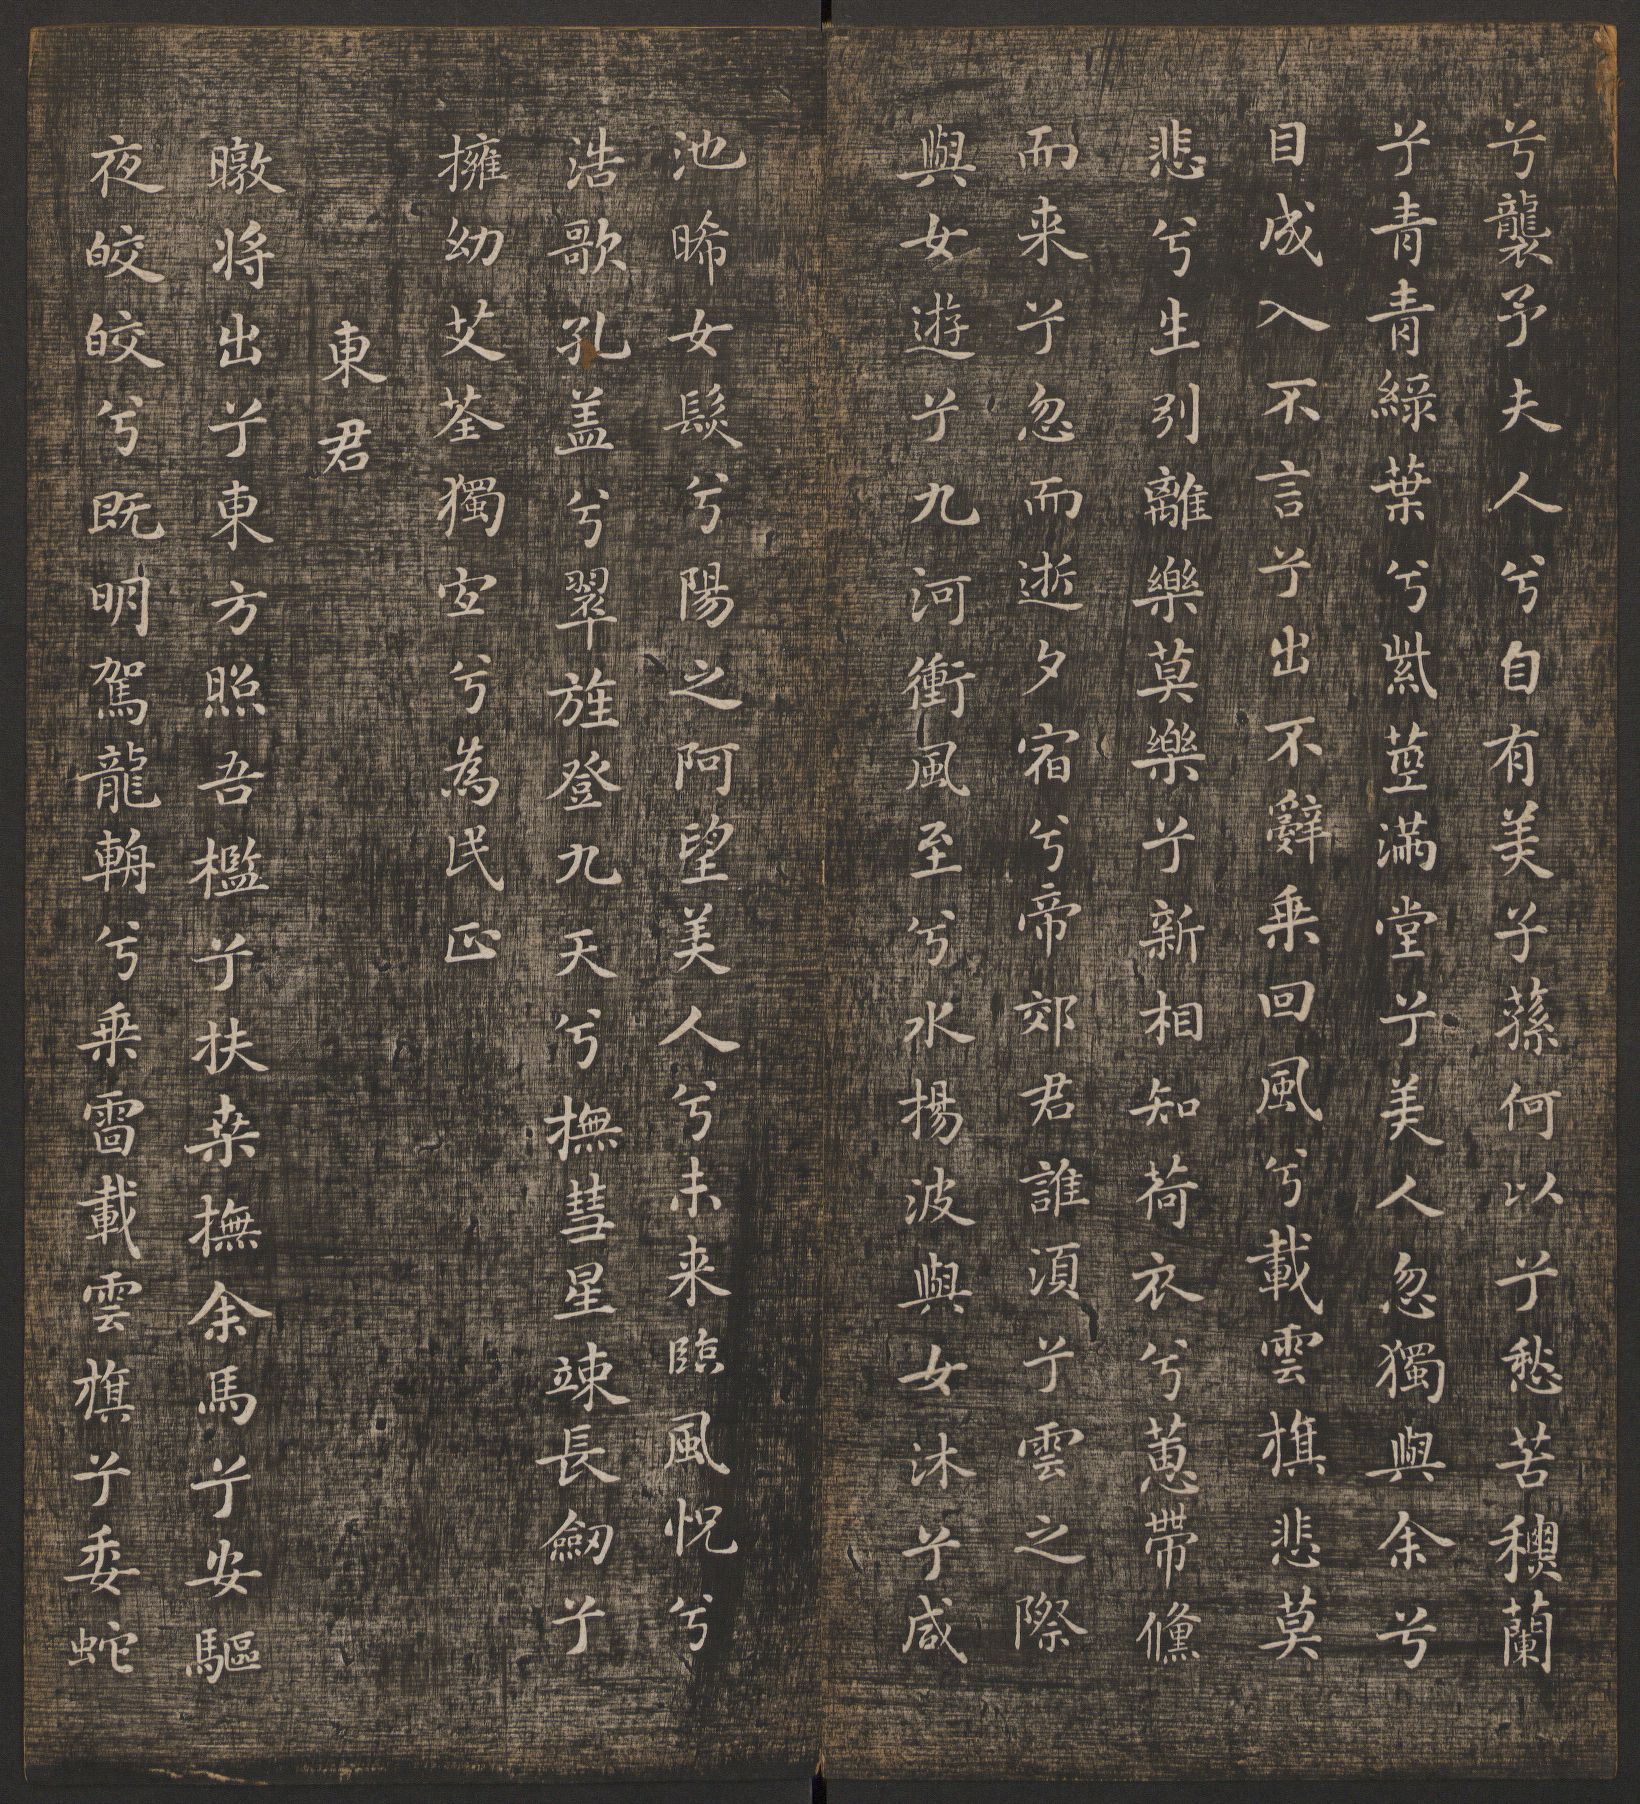 兮襲予夫人兮自有美子蓀何以兮愁苦穮蘭
兮青青綠葉兮紫莖滿堂兮美人忽獨與余兮
目成入不言兮出不辭乗回風兮載雲旗悲莫
悲兮生别離樂莫樂兮新相知荷衣兮蕙帶儵
而来兮忽而逝夕宿兮帝郊君誰湏兮雲之際
與女遊兮九河衝風至兮水揚波與女沐兮咸
池晞女髮兮陽之阿望美人兮未来臨風怳兮
浩歌孔盖兮翠旌登九天兮撫彗星竦長劒兮
擁幼艾荃獨宜兮為民正
東君
暾将出兮東方照吾檻兮扶桒撫余馬兮安驅
夜皎皎兮既明駕龍輈兮乗雷載雲旗兮委蛇